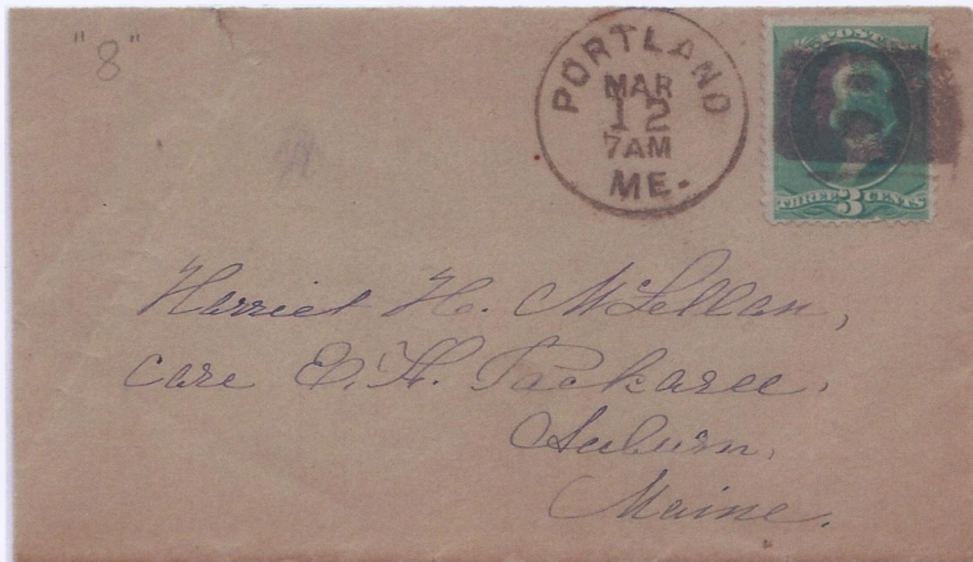 "8"
PORTLAND
MAR
12
7AM
ME.
POST
8
THREE 3 CENTS
Harriet H. McLellan,
care E. H. Packard.
Auburn,
Maine.